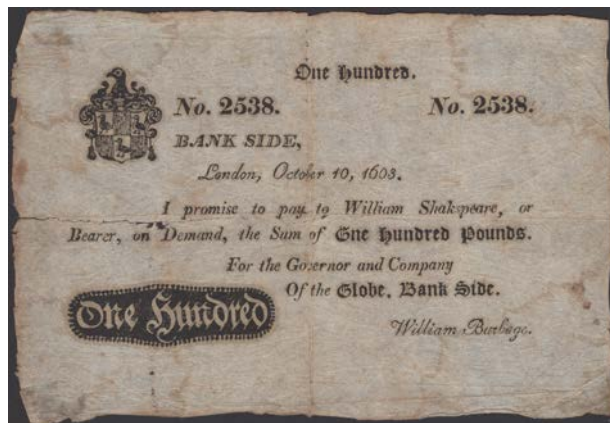 One Hundred.
No. 2538. No. 2538.
BANK SIDE,
London, October 10, 1603.
I promise to pay to William Shakspeare, or
Bearer, on Demand, the Sum of One Hundred Pounds.
For the Governor and Company
Of the Globe, Bank Side.
One Hundred
William Burbage.